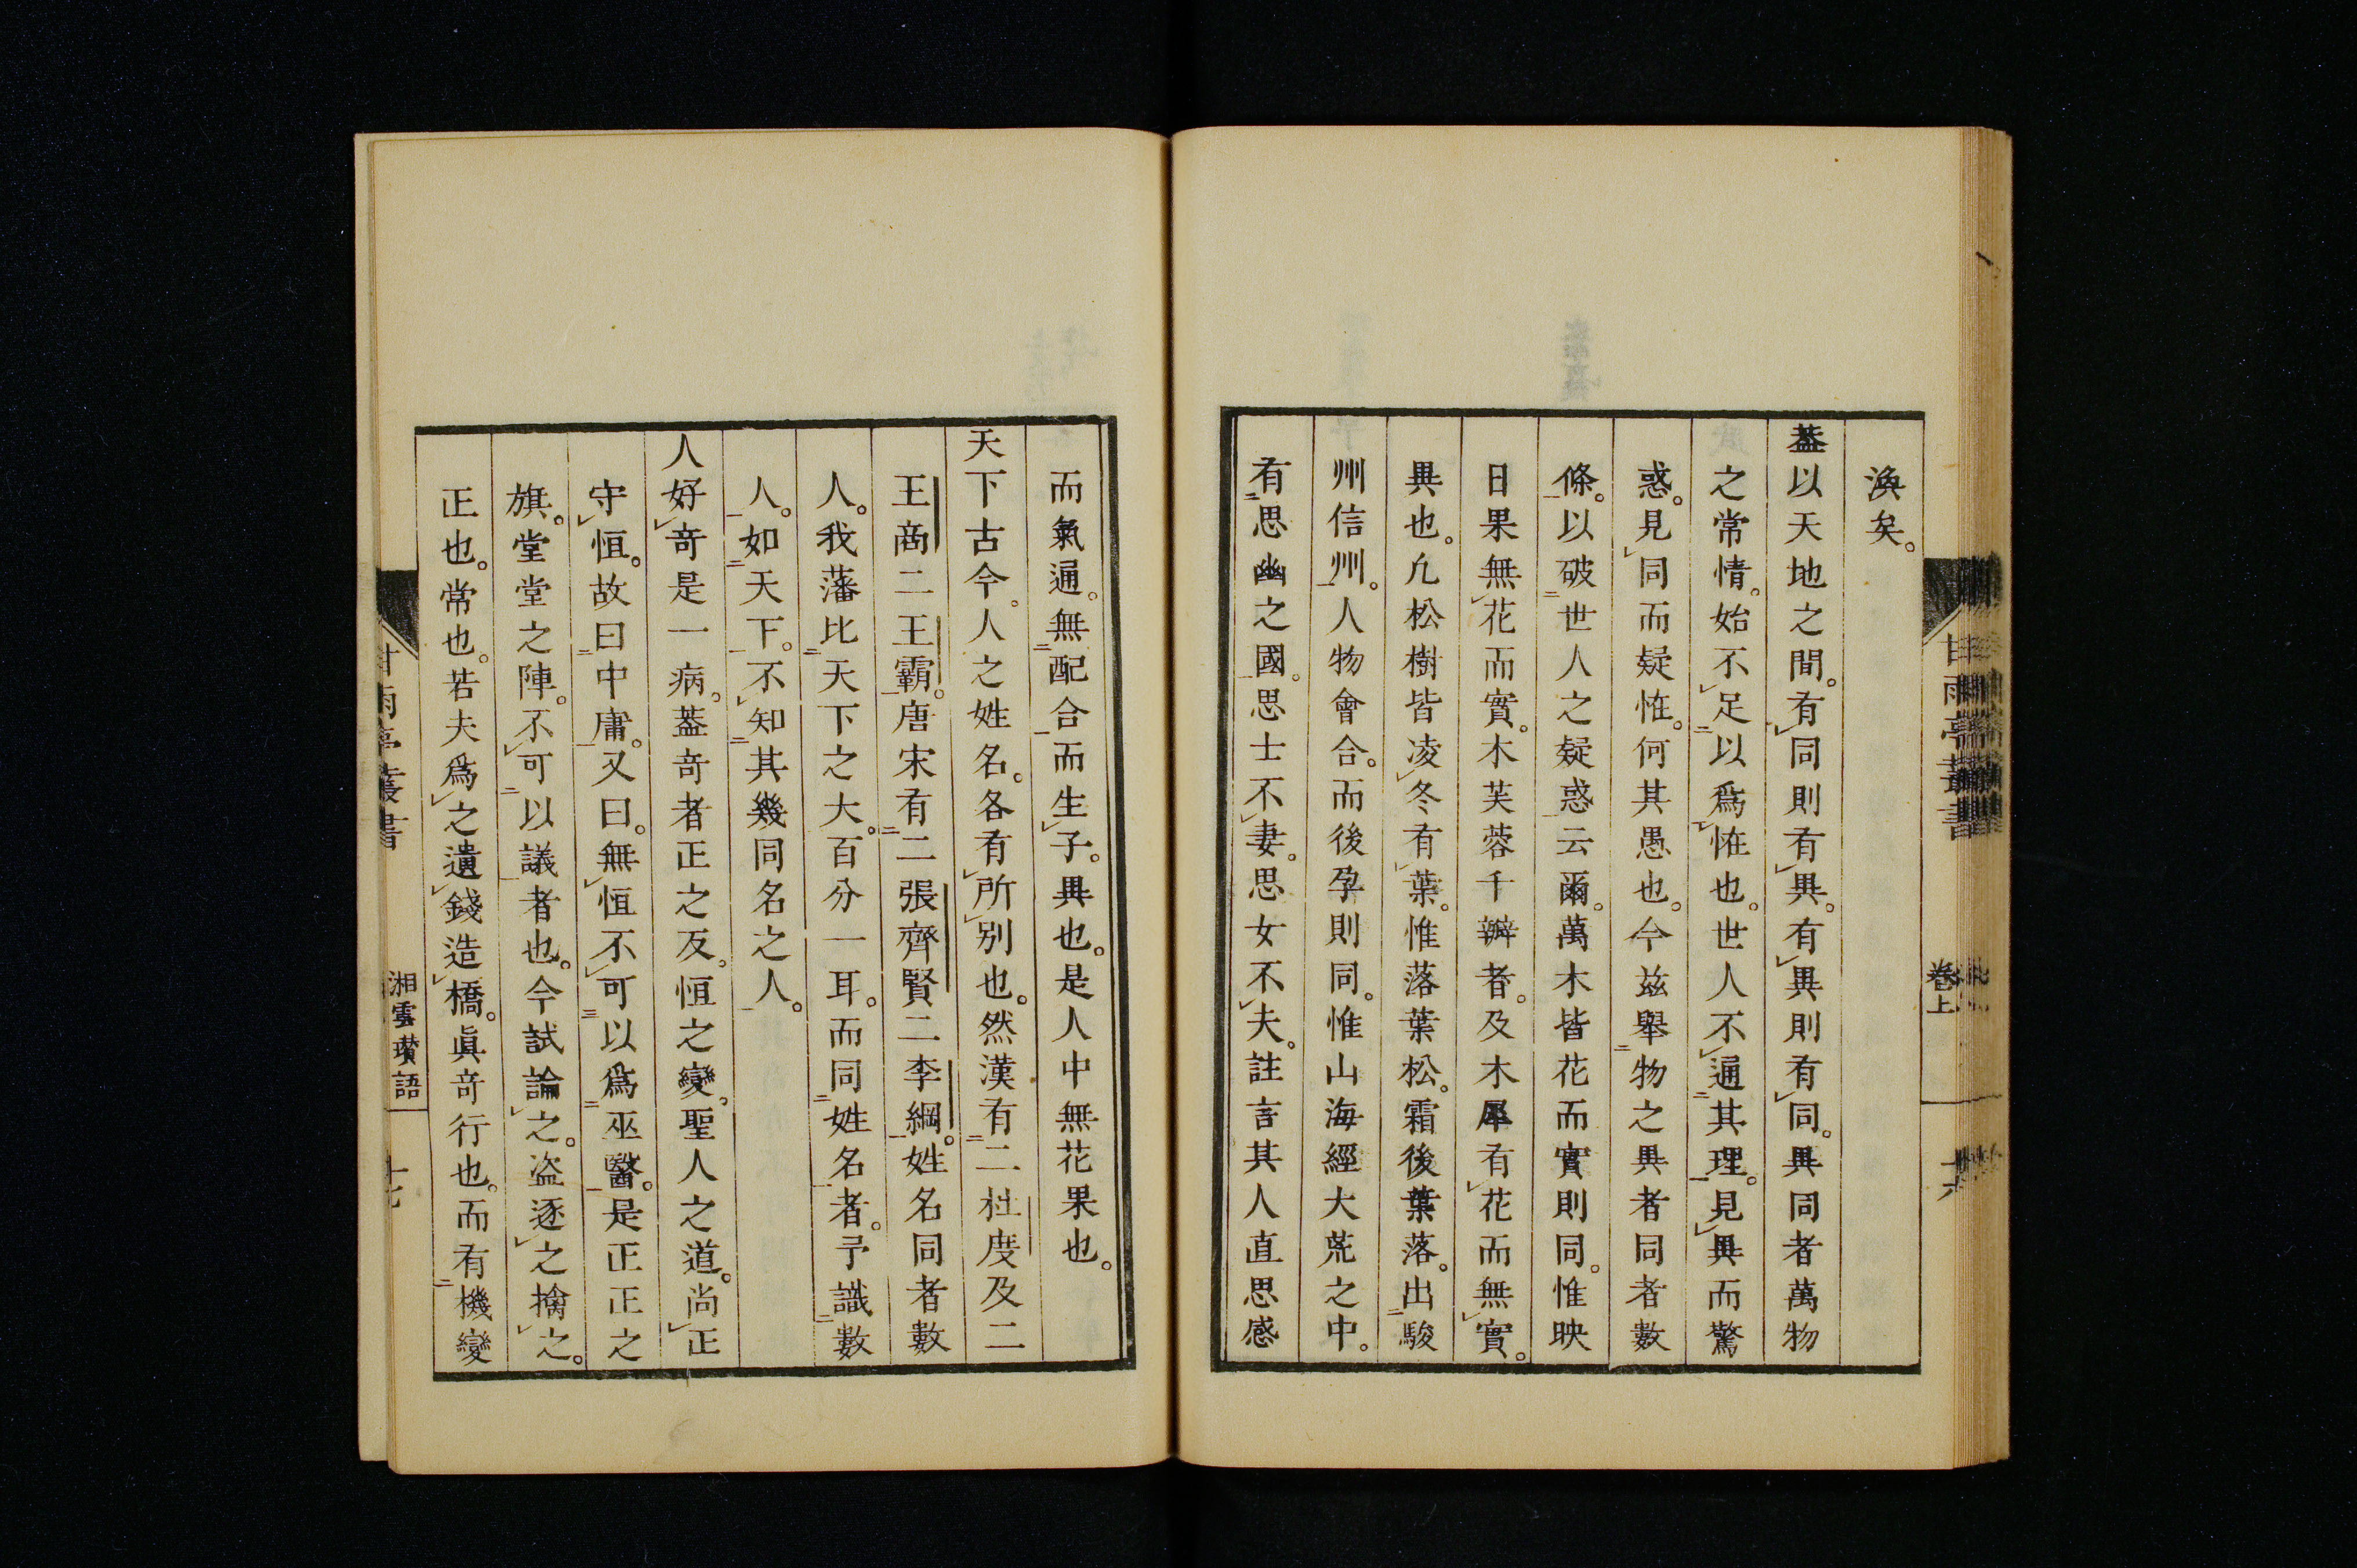 渙矣。
蓋以天地之間。有同則有異。有異則有同。異同者萬物
之常情。始不足以爲恠也。世人不通其理。見異而驚
惑。見同而疑恠。何其愚也。今玆舉物之異者同者數
條。以破世人之疑惑云爾。萬木皆花而實則同。惟映
日果無花而實。木芙蓉千瓣者。及木犀有花而無實。
異也。凡松樹皆凌冬有葉。惟落葉松。霜後葉落。出駿
州信州。人物會合。而後孕則同。惟山海經大荒之中。
有思幽之國。思士不妻。思女不夫。註言其人直思感
甘雨亭叢書
卷上
十六
而氣通。無配合而生子。異也。是人中無花果也。
天下古今。人之姓名。各有所別也。然漢有二杜度及二
王商二王霸。唐宋有二張齊賢二李綱。姓名同者數
人。我藩比天下之大。百分一耳。而同姓名者。予識數
人。如天下。不知其幾同名之人。
人好奇是一病。蓋奇者正之反。恒之變。聖人之道。尚正
守恒。故曰中庸。又曰。無恒不可以爲巫醫。是正正之
旗。堂堂之陣。不可以議者也。今試論之。盜逐之擒之。
正也。常也。若夫爲之遺錢造橋。眞奇行也。而有機變
甘雨亭叢書
湘雲瓚語
十七